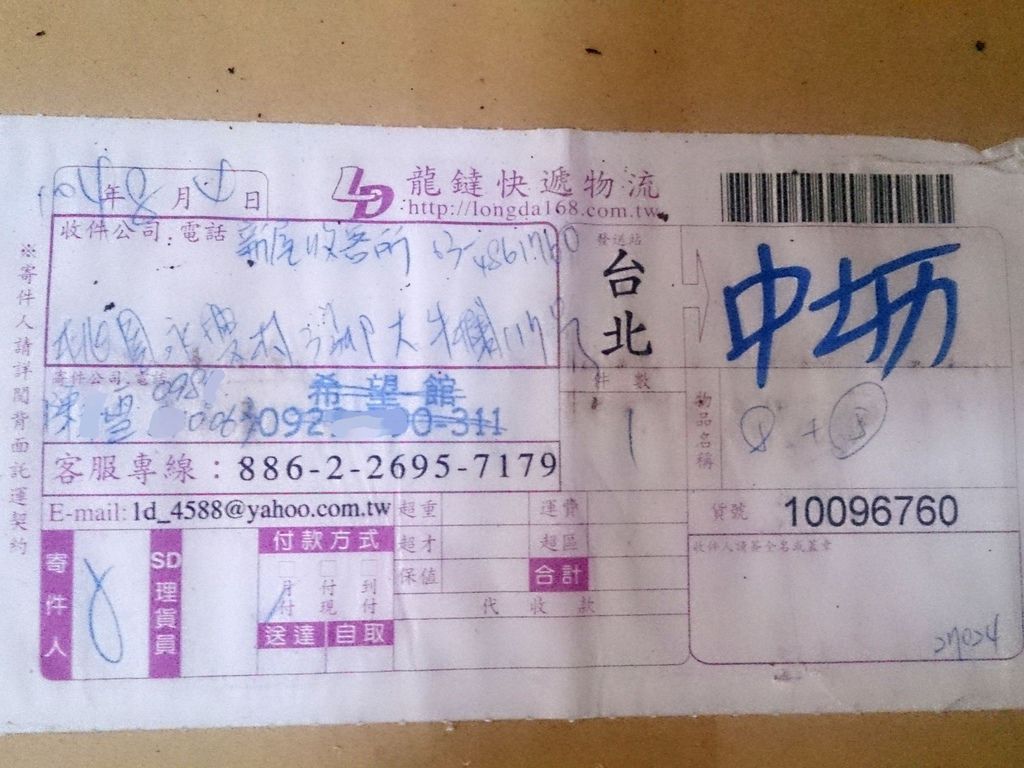 年 8 月 日
LD 龍鍵快遞物流
http://longda168.com.tw
收件公司:電話 新屋收容所 03-4861760
發送站
台北
中坜
桃園 永興村 大牛欄
寄件公司:電話
希望館
件數
1
物品名稱
客服專線:886-2-2695-7179
E-mail:ld_4588@yahoo.com.tw
超重 運費
貨號 10096760
超才 超區
保值 合計
代收款
收件人請簽全名或蓋章
寄件人
SD理貨員
付款方式
月付 付現 到付
送達 自取
27024
※寄件人請詳閱背面託運契約